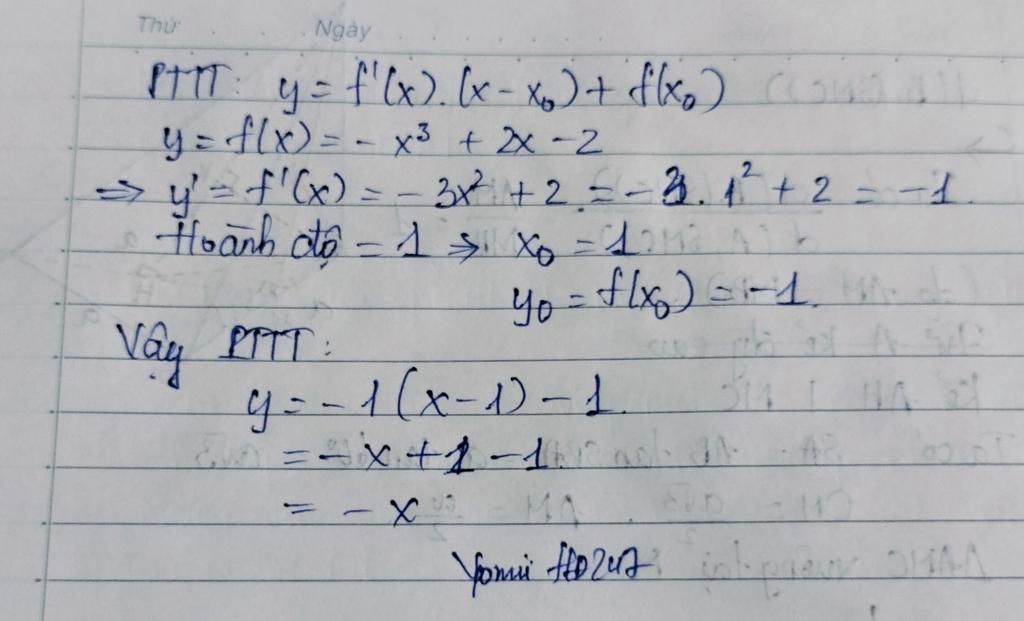 Thứ Ngày
PTTT: y = f'(x).(x - x₀) + f(x₀)
y = f(x) = - x³ + 2x - 2
⇒ y' = f'(x) = - 3x² + 2 = - 3. 1² + 2 = - 1.
Hoành độ = 1 ⇒ x₀ = 1
y₀ = f(x₀) = -1.
Vậy PTTT:
y = - 1 (x - 1) - 1.
= - x + 1 - 1.
= - x